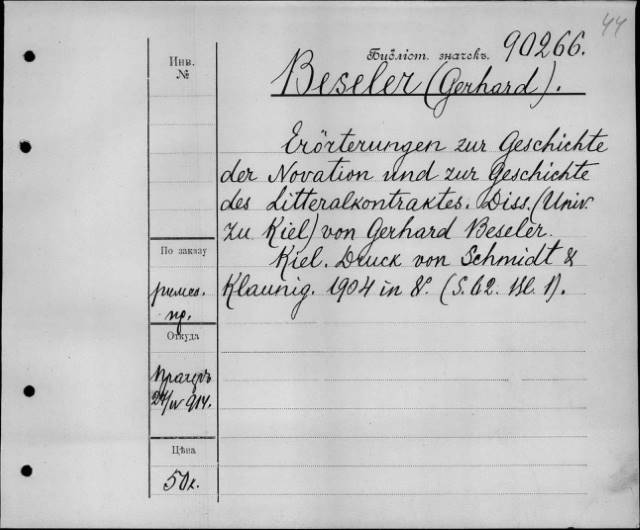 44
Библіот. значекъ. 90266.
Инв.
№
Beseler (Gerhard).
Erörterungen zur Geschichte
der Novation und zur Geschichte
des Litteralkontraktes. Diss. (Univ.
zu Kiel) von Gerhard Beseler.
Kiel. Druck von Schmidt &
Klaunig. 1904 in 8°. (S. 62. Bl. 1).
По заказу
римск.
пр.
Откуда
24/IV 914.
Цѣна
50к.